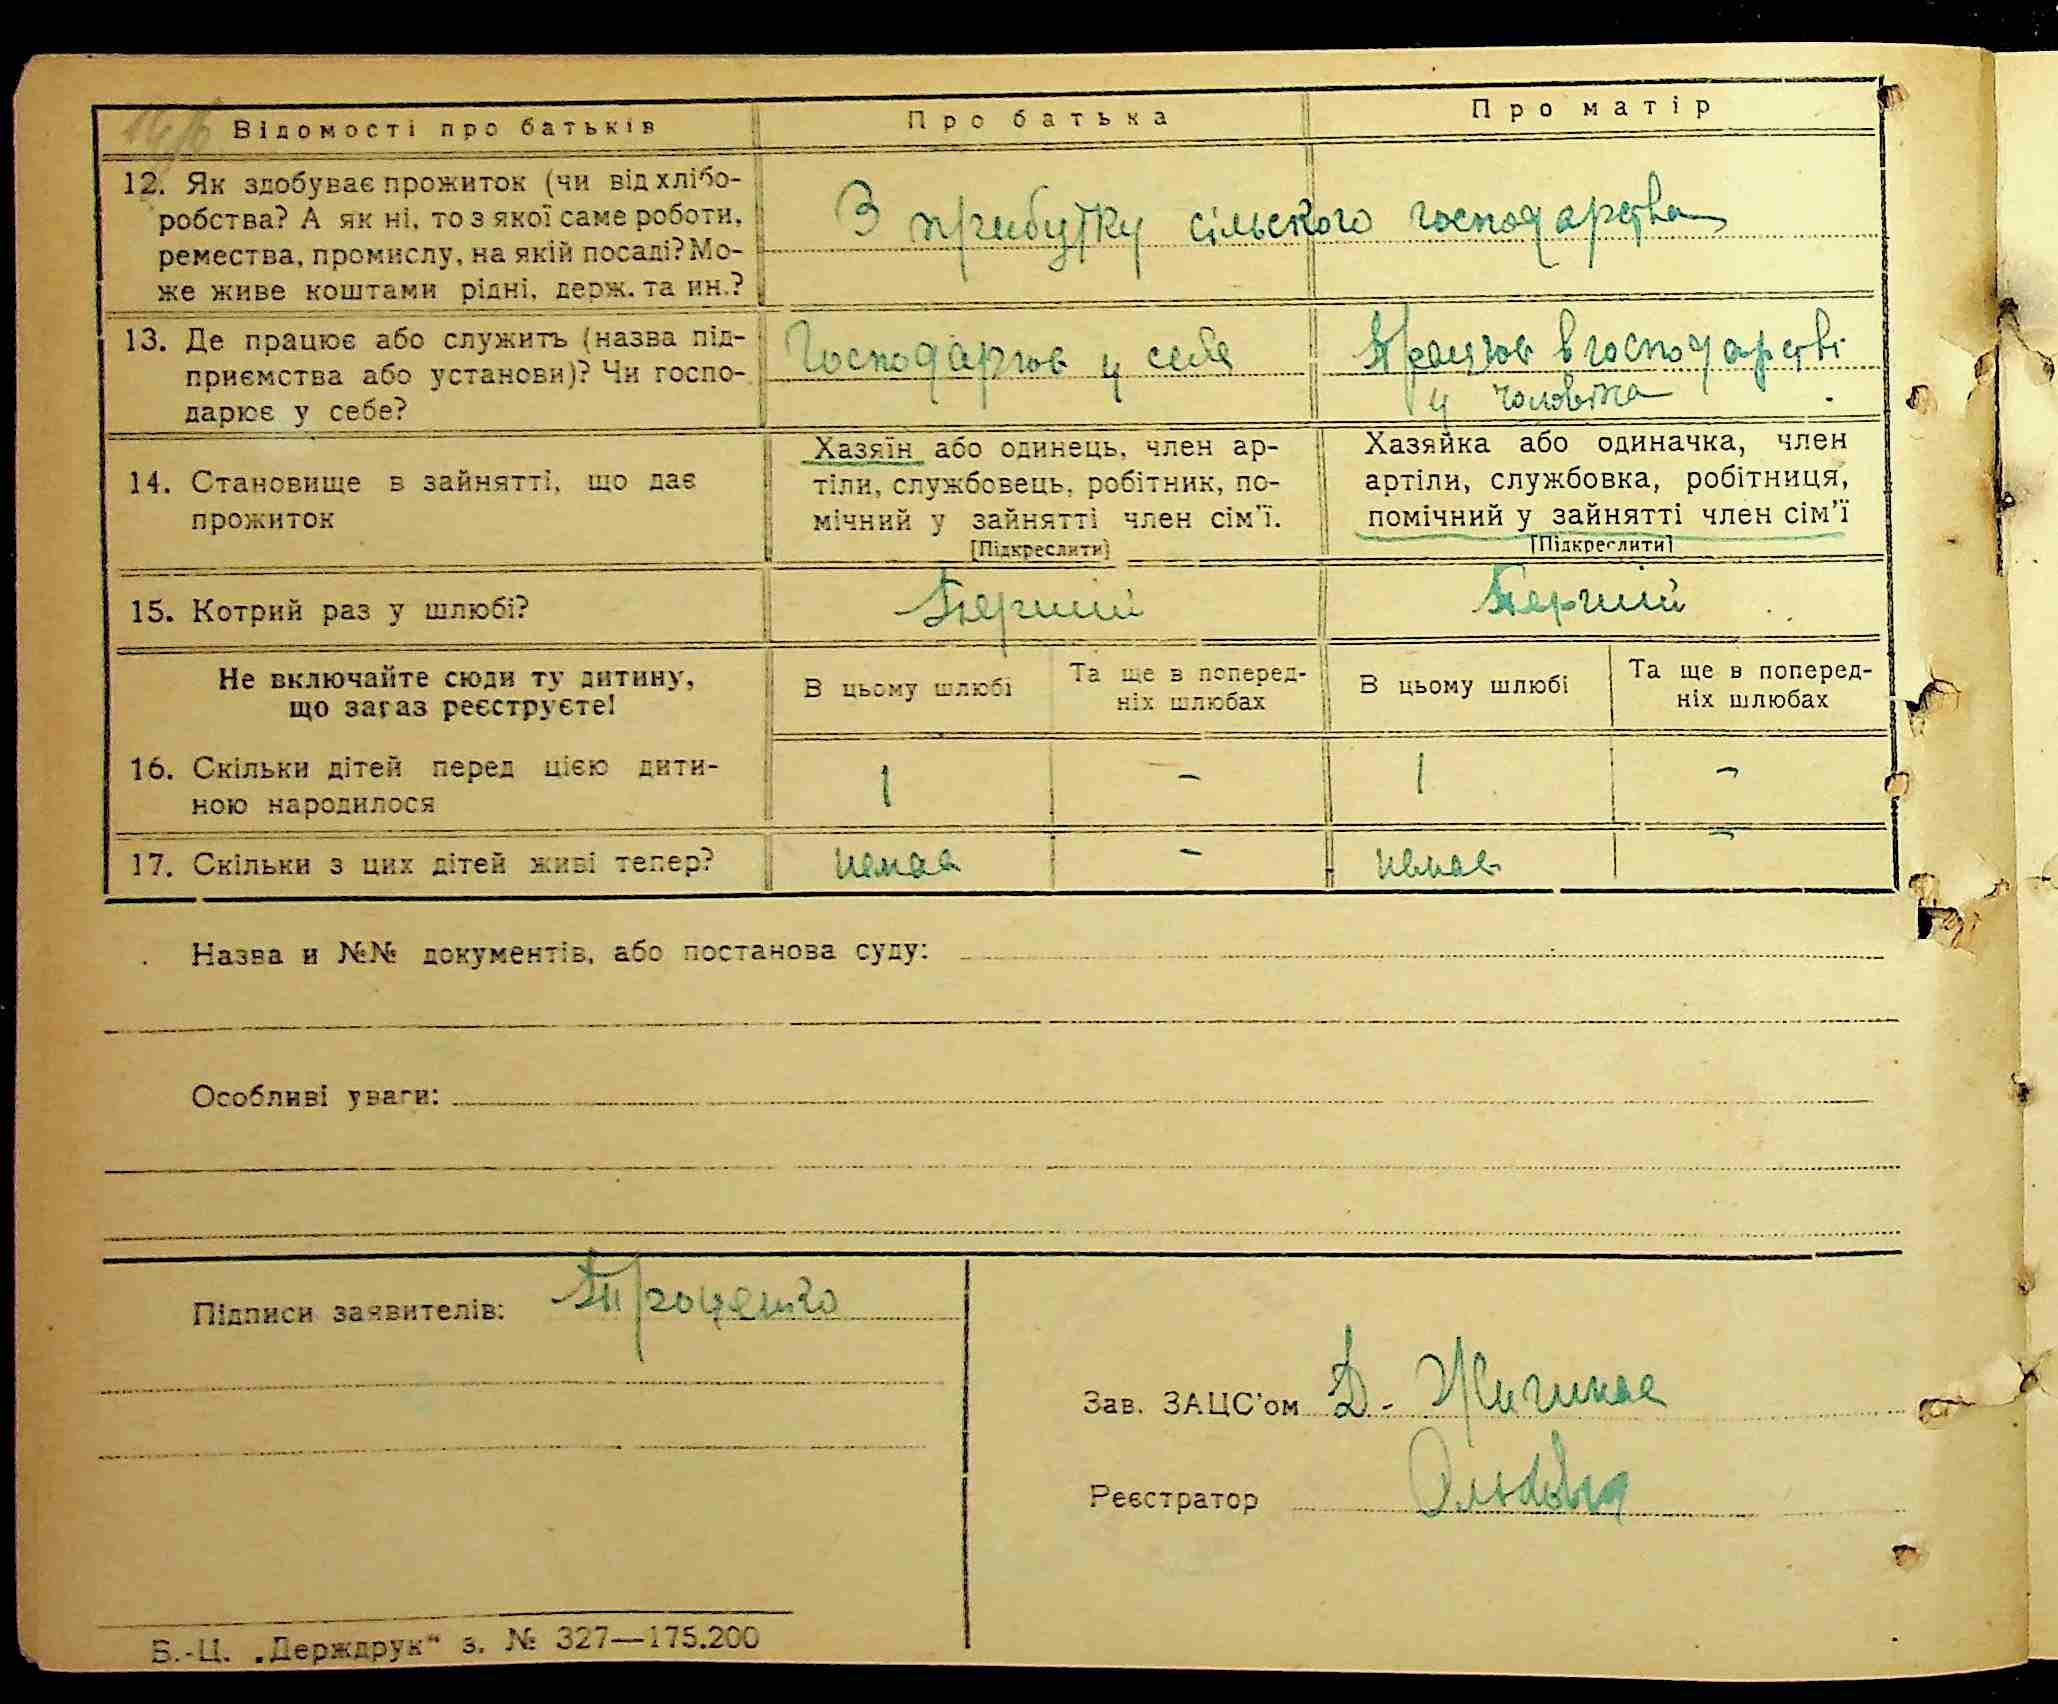 Відомості про батьків
Про батька
Про матір
12. Як здобуває прожиток (чи від хлібо-
робства? А як ні, то з якої саме роботи,
ремества, промислу, на якій посаді? Мо-
же живе коштами рідні, держ. та ин.?
З прибутку сільского господарства
13. Де працює або служить (назва під-
приємства або установи)? Чи госпо-
дарює у себе?
Господарює у себе
Працює в господарстві
у чоловіка
14. Становище в зайнятті, що дає
прожиток
Хазяїн або одинець, член ар-
тіли, службовець, робітник, по-
мічний у зайнятті член сім'ї.
[Підкреслити]
Хазяйка або одиначка, член
артіли, службовка, робітниця,
помічний у зайнятті член сім'ї
[Підкреслити]
15. Котрий раз у шлюбі?
Перший
Перший
Не включайте сюди ту дитину,
що зараз реєструєте!
В цьому шлюбі
Та ще в поперед-
ніх шлюбах
В цьому шлюбі
Та ще в поперед-
ніх шлюбах
16. Скільки дітей перед цією дити-
ною народилося
1
-
1
-
17. Скільки з цих дітей живі тепер?
немає
-
немає
-
Назва и №№ документів, або постанова суду:
Особливі уваги:
Підписи заявителів:
Проценко
Зав. ЗАЦС'ом Д.
Реєстратор
Б.-Ц. „Держдрук“ з. № 327—175.200